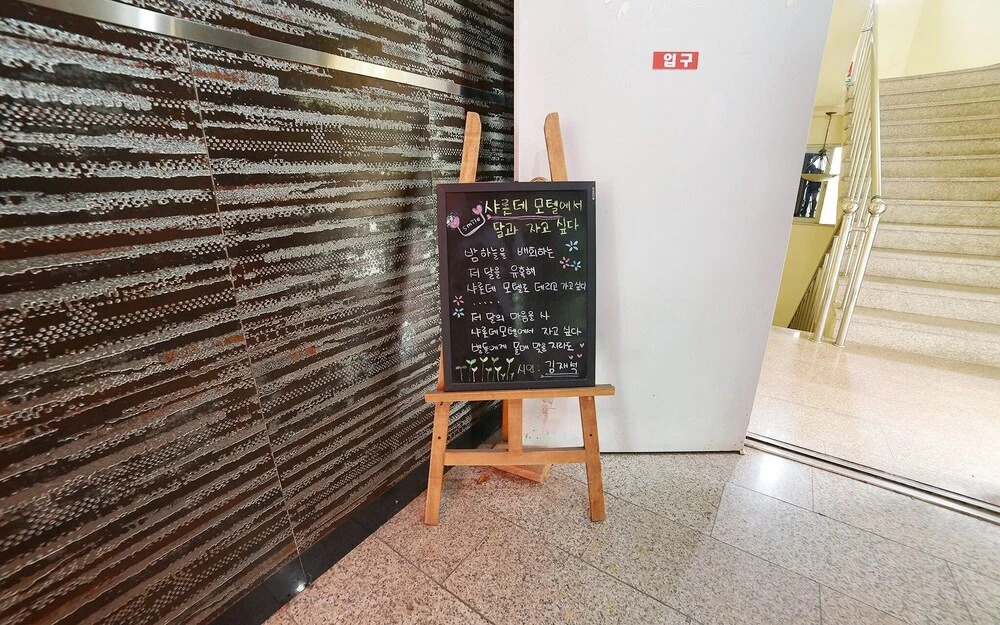 입구
smile
샤른데 모텔에서
달과 자고 싶다
밤하늘을 배회하는
저 달을 유혹해
샤른데 모텔로 데리고 가고싶다
.....
저 달의 마음을 사
샤른데모텔에서 자고 싶다
별들에게 몰매 맞을지라도
시인: 김재혁